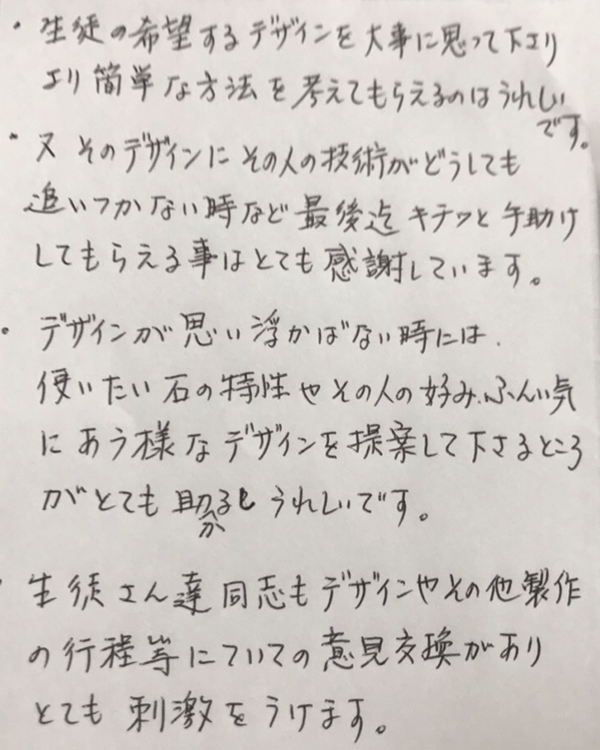 ・生徒の希望するデザインを大事に思って下さり
より簡単な方法を考えてもらえるのはうれしい
です。
・又 そのデザインにその人の技術がどうしても
追いつかない時など最後迄キチッと手助け
してもらえる事はとても感謝しています。
・デザインが思い浮かばない時には、
使いたい石の特性やその人の好み、ふんい気
にあう様なデザインを提案して下さるところ
がとても助かるしうれしいです。
・生徒さん達同志もデザインやその他製作
の行程等についての意見交換があり
とても刺激をうけます。